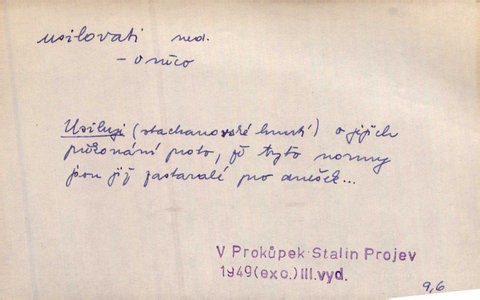 usilovati ned.
– o něco
Usilují (stachanovské hnutí) o jejich
překonání proto, že tyto normy
jsou již zastaralé pro dnešek...
V Prokůpek-Stalin Projev
1949(exc.)III.vyd.
9,6